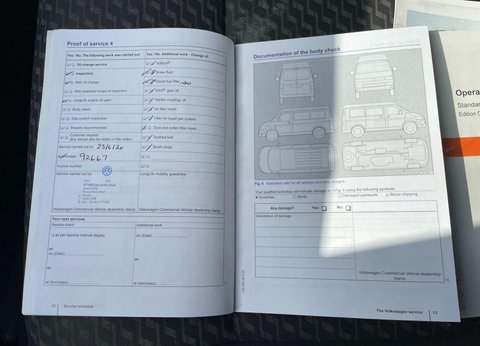 Proof of service 4
Yes / No, The following work was carried out:
Yes / No, Additional work / Change of:
Oil change service
AdBlue®
Inspection
Brake fluid
With oil change
Diesel fuel filter
With extended scope of inspection
DSG®, gear oil
LongLife engine oil used
Haldex coupling, oil
Body check
Air filter insert
Gas system inspection
Filter for liquid gas system
Repairs recommended
Dust and pollen filter insert
Customer request
(this should also be noted on the order)
Toothed belt
Service carried out on: 23/6/20
Spark plugs
92667
Invoice number:
Service carried out by:
LongLife mobility guarantee:
Volkswagen Commercial Vehicle dealership stamp
Volkswagen Commercial Vehicle dealership stamp
Your next services
Service event
Additional work
as per Service interval display
on (Date)
or
or
on (Date)
or
at (km/miles)
at (km/miles)
12 Service schedule
Documentation of the body check
Fig. 6 Illustration valid for all vehicles and body designs.
Your qualified workshop will indicate damage in Fig. 6 using the following symbols:
Scratches
Dents
Damaged paintwork
Stone chipping
Any damage?
Yes:
No:
Description of damage:
Volkswagen Commercial Vehicle dealership
stamp
The Volkswagen service 13
Opera
Standa
Edition